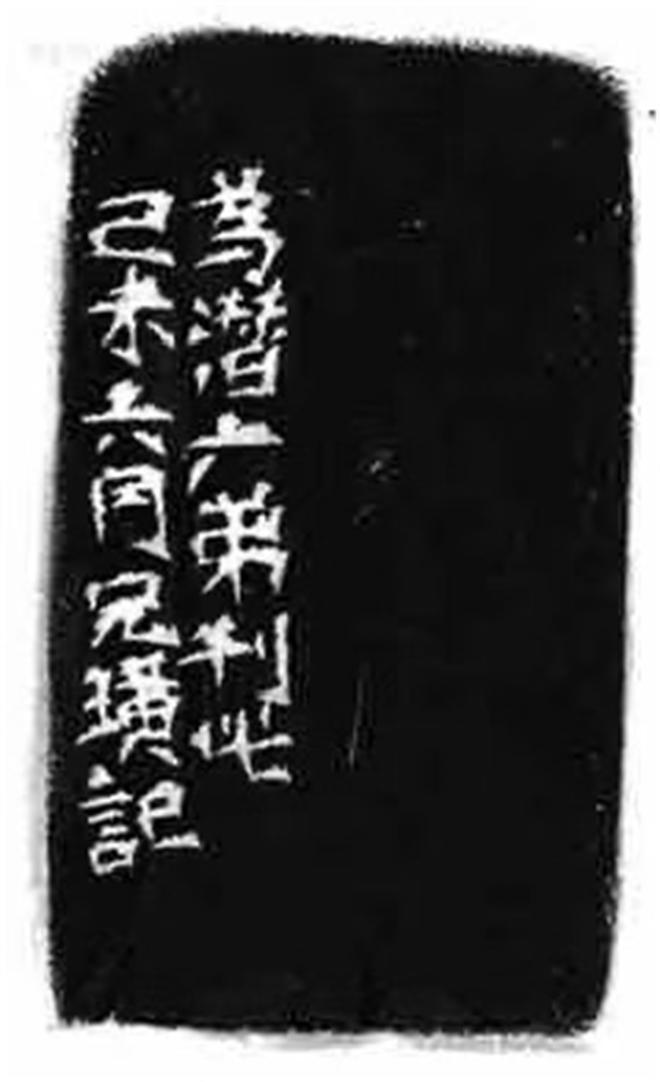 為潛六弟刊此
己未六月兄璜記